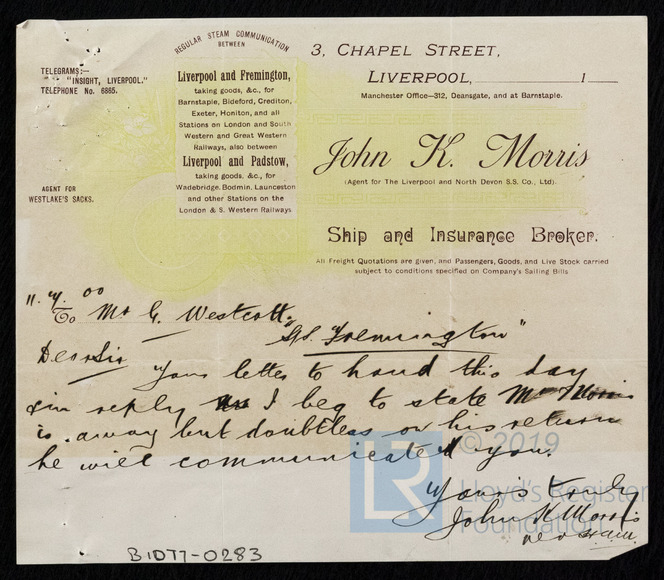 REGULAR STEAM COMMUNICATION
BETWEEN
Liverpool and Fremington,
taking goods, &c., for
Barnstaple, Bideford, Crediton,
Exeter, Honiton, and all
Stations on London and South
Western and Great Western
Railways, also between
Liverpool and Padstow,
taking goods, &c., for
Wadebridge, Bodmin, Launceston
and other Stations on the
London & S. Western Railways
TELEGRAMS:—
"INSIGHT, LIVERPOOL."
TELEPHONE No. 6865.
AGENT FOR
WESTLAKE'S SACKS.
3, CHAPEL STREET,
LIVERPOOL, 1
Manchester Office—312, Deansgate, and at Barnstaple.
John K. Morris
(Agent for The Liverpool and North Devon S.S. Co., Ltd).
Ship and Insurance Broker.
All Freight Quotations are given, and Passengers, Goods, and Live Stock carried
subject to conditions specified on Company's Sailing Bills
To Mr G. Westcott,
"SS. Fremington"
Dear Sir
Your letter to hand this day
& in reply I beg to state Mr Morris
is away but doubtless on his return
he will communicate you.
Yours truly
John K Morris
© 2019
LR
Lloyd's Register
Foundation
BIDTT-0283